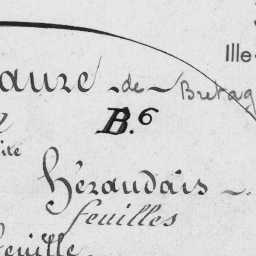 Ille-
aure de Bretag
B.6
ite
Héraudais
feuilles
feuille